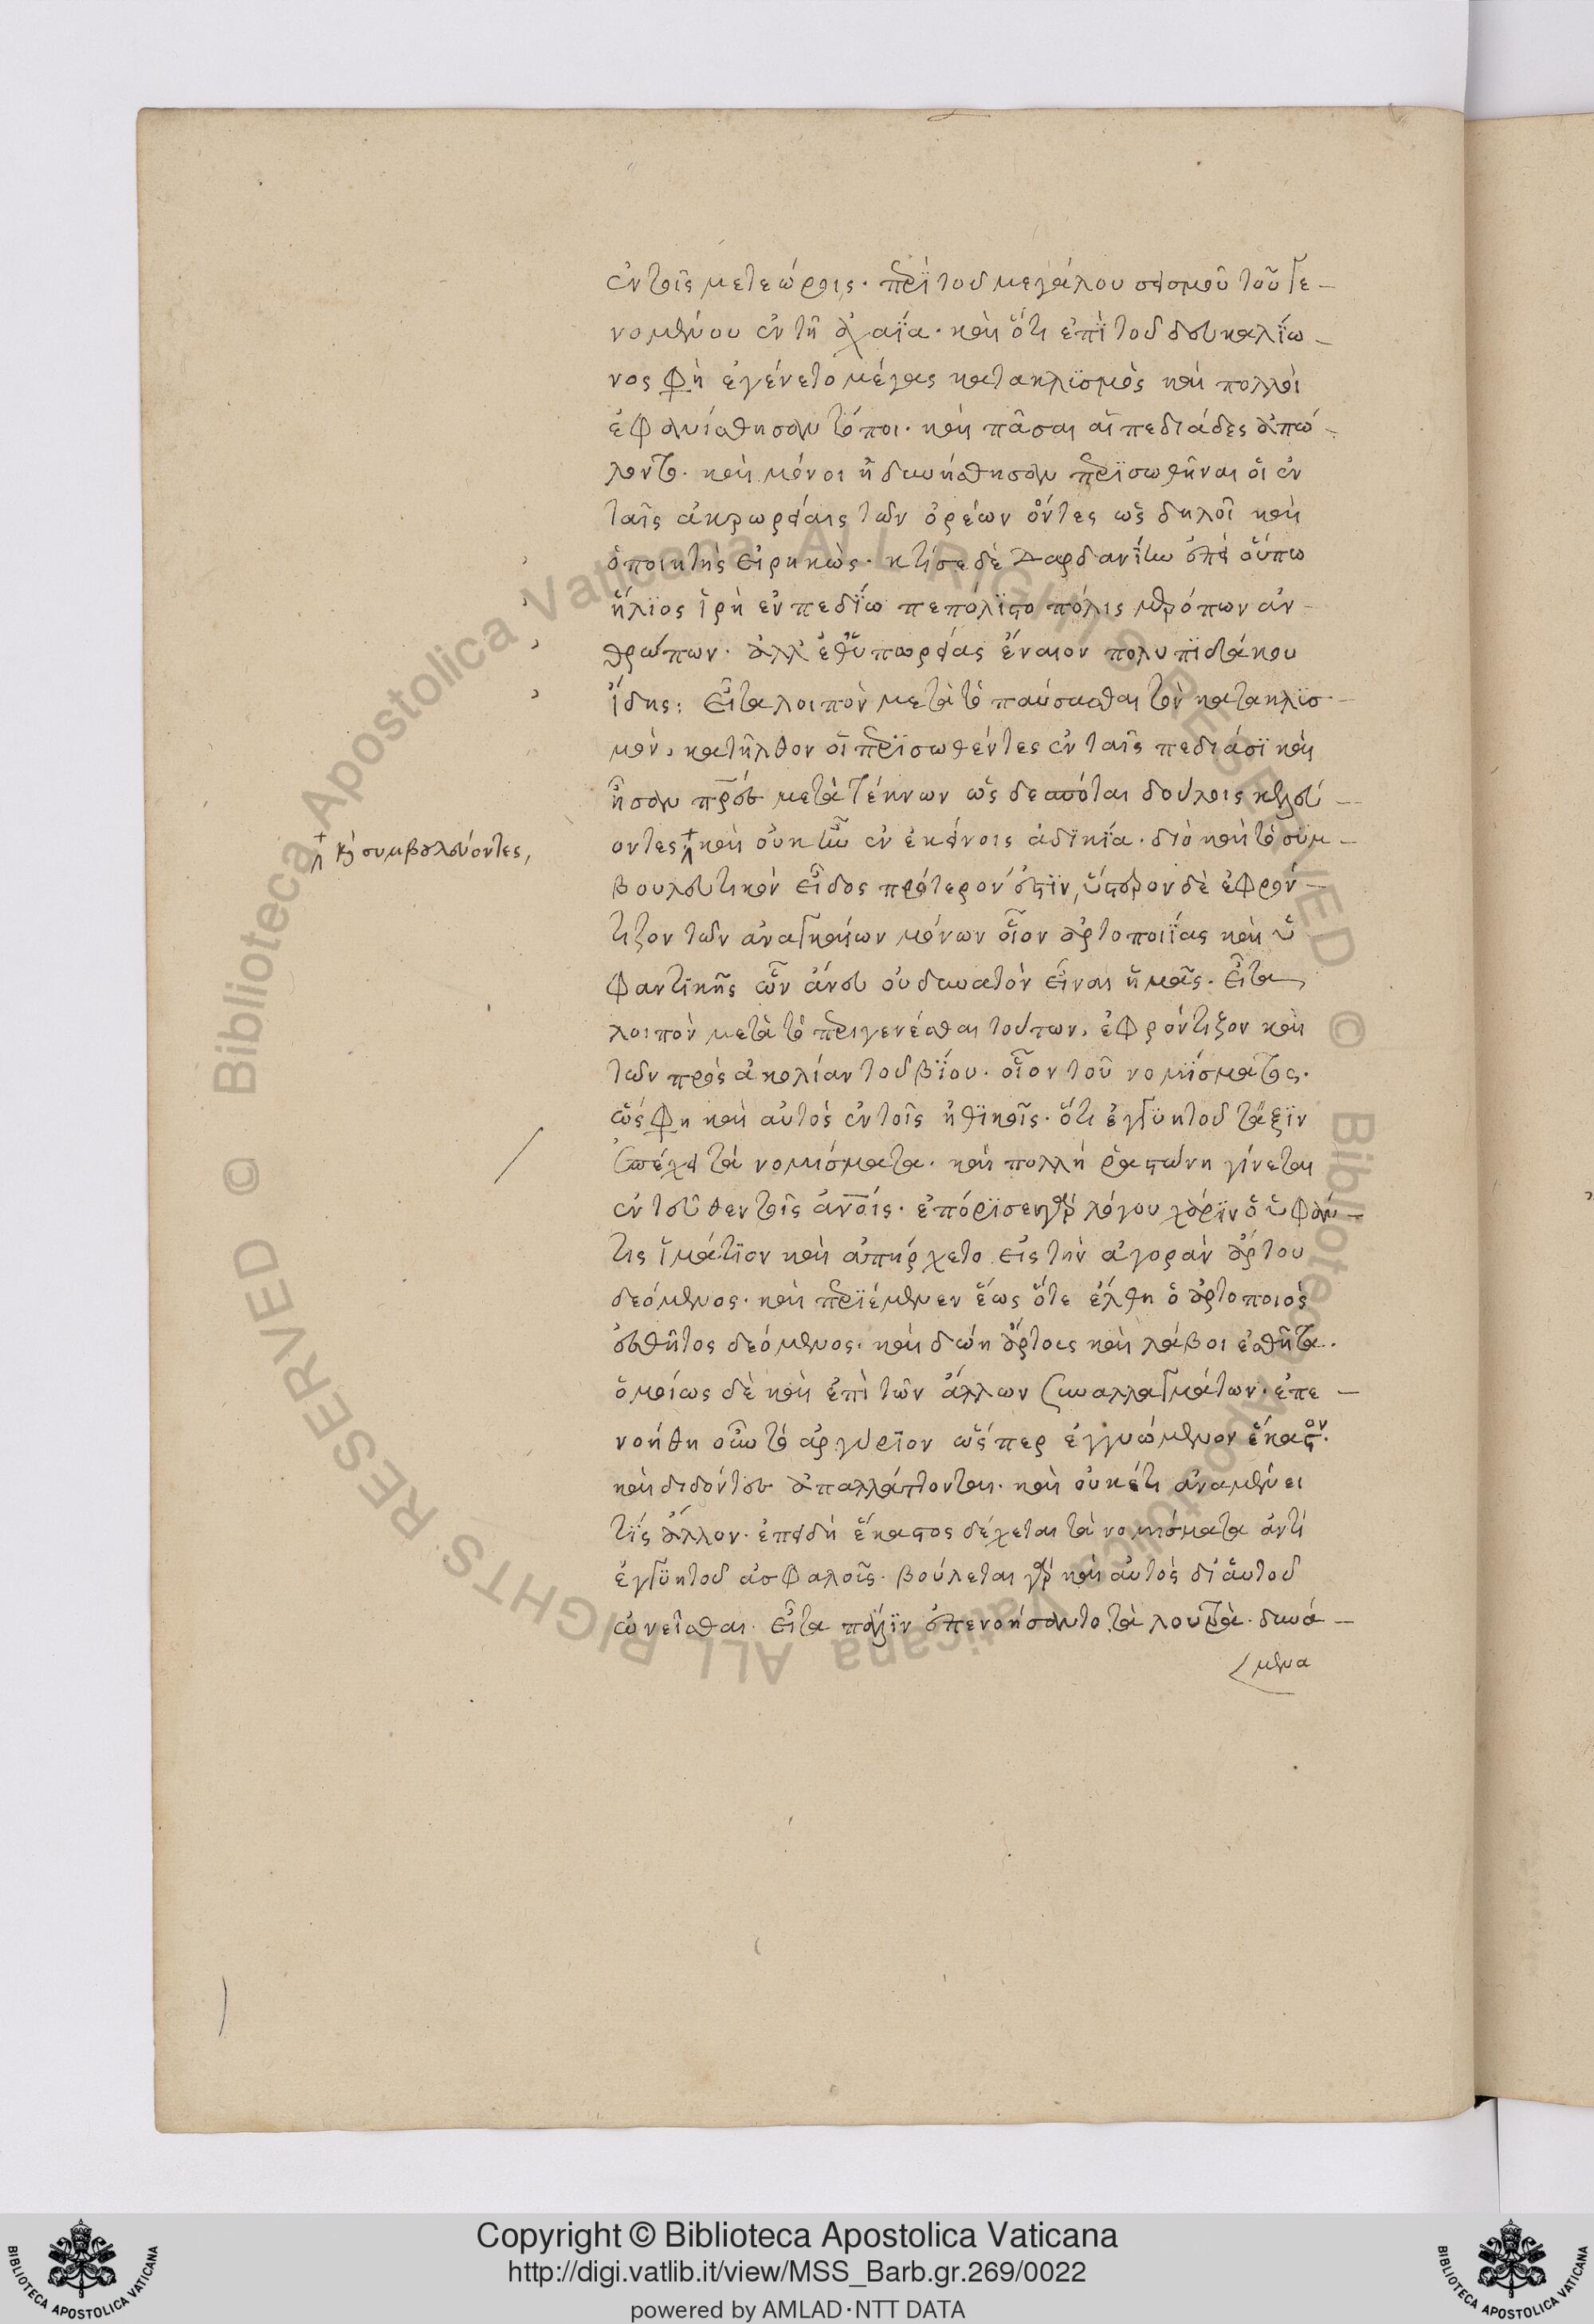 ἐν τοῖς μετεώροις. περὶ τοῦ μεγάλου σεισμοῦ τοῦ γε-
νομένου ἐν τῆ ἀχαΐα. καὶ ὅτι ἐπὶ τοῦ δευκαλίω-
νος φη ἐγένετο μέγας κατακλϊσμὸς καὶ πολλοὶ
ἐφανίσθησαν τόποι. καὶ πᾶσαι αἱ πεδιάδες ἀπώ-
λοντο. καὶ μόνοι ἠδυνήθησαν περισωθῆναι οἱ ἐν
ταῖς ἀκρωρείαις τῶν ὀρέων ὄντες ὡς δηλοῖ καὶ
ὁ ποιητὴς εἰρηκὼς. κτίσε δὲ Δαρδανίην ἐπεὶ οὔπω
ἥλϊος ἱρὴ ἐν πεδίω πεπόλιστο πόλις μερόπων ἀν-
θρώπων. ἀλλ' ἐθ' ὑπωρείας ἔναιον πολυπιδάκου
ἴδης: Εἶτα λοιπὸν μετὰ τὸ παύσασθαι τὸν κατακλϊσ-
μὸν, κατῆλθον οἱ περισωθέντες ἐν ταῖς πεδιάσϊ καὶ
ἦσαν πατρὸς μετὰ τέκνων ὡς δεσπόται δούλοις κελεύ-
οντες καὶ οὐκ ἦν ἐν ἐκείνοις ἀδϊκία. διὸ καὶ τὸ συμ-
+ κ συμβουλεύοντες,
βουλευτικὸν εἶδος πρότερον ἐστὶν, ὕστερον δὲ ἐφρόν-
τιζον τῶν ἀναγκαίων μόνων οἷον ἀρτοποιΐας καὶ ὑ
φαντικῆς ὧν ἄνευ οὐ δυνατὸν εἶναι ἡμᾶς. Εἶτα
λοιπὸν μετὰ τὸ περιγενέσθαι τούτων, ἐφρόντιζον καὶ
τῶν πρὸς ἀκολίαν τοῦ βίου. οἷον τοῦ νομίσματος.
ὡς φη καὶ αὐτὸς ἐν τοῖς ἠθικοῖς. ὅτι ἐγγυητοῦ τάξιν
ἐπέχει τὰ νομίσματα. καὶ πολλὴ ῥαστώνη γίνεται
ἐντεῦθεν τοῖς ἀνοις. ἐπόρισεν γὰρ λόγου χάριν ὁ ὑφάν-
της ἱμάτϊον καὶ ἀπήρχετο εἰς τὴν ἀγορὰν ἄρτου
δεόμενος. καὶ περιέμενεν ἕως ὅτε ἔλθη ὁ ἀρτοποιὸς
ἐσθῆτος δεόμενος. καὶ δώη ἄρτοις καὶ λάβοι ἐσθῆτα.
ὁμοίως δὲ καὶ ἐπὶ τῶν ἄλλων συναλλαγμάτων. ἐπε-
νοήθη οὖν τὸ ἀργύριον ὥσπερ ἐγγυώμενον ἕκαστον.
καὶ διδόντες ἀπαλλάττονται. καὶ οὐκέτι ἀναμένει
τὶς ἄλλον. ἐπειδὴ ἕκαστος δέχεται τὰ νομίσματα ἀντὶ
ἐγγυητοῦ ἀσφαλοῖς. βούλεται γὰρ καὶ αὐτὸς δι' αὐτοῦ
ὠνεῖσθαι. Εἶτα πάλϊν ἐπενοήσαντο τὰ λουτρὰ. δυνά-
μενα
Copyright © Biblioteca Apostolica Vaticana
http://digi.vatlib.it/view/MSS_Barb.gr.269/0022
powered by AMLAD·NTT DATA